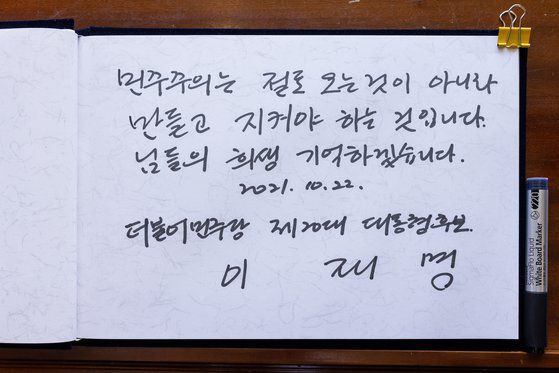 민주주의는 절로 오는 것이 아니라
만들고 지켜야 하는 것입니다.
님들의 희생 기억하겠습니다.
2021. 10. 22.
더불어민주당 제20대 대통령후보.
이 재 명
SigmaFlo Liquid
White Board Marker
220